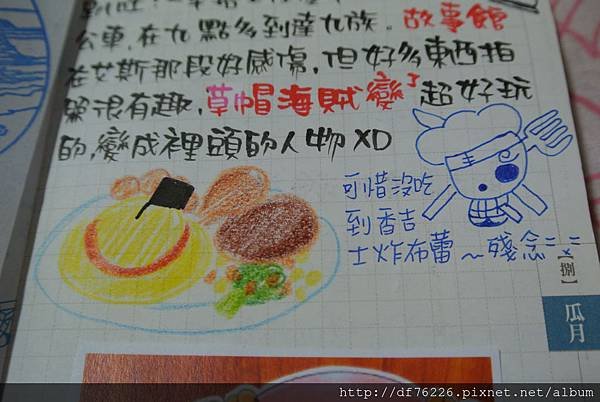 公車,在九點多到達九族。故事館
在艾斯那段好感傷,但好多東西拍
照很有趣,草帽海賊變了超好玩
的,變成裡頭的人物XD
可惜沒吃
到香吉
士炸布蕾~殘念
【捌】
瓜月
http://df76226.pixnet.net/album